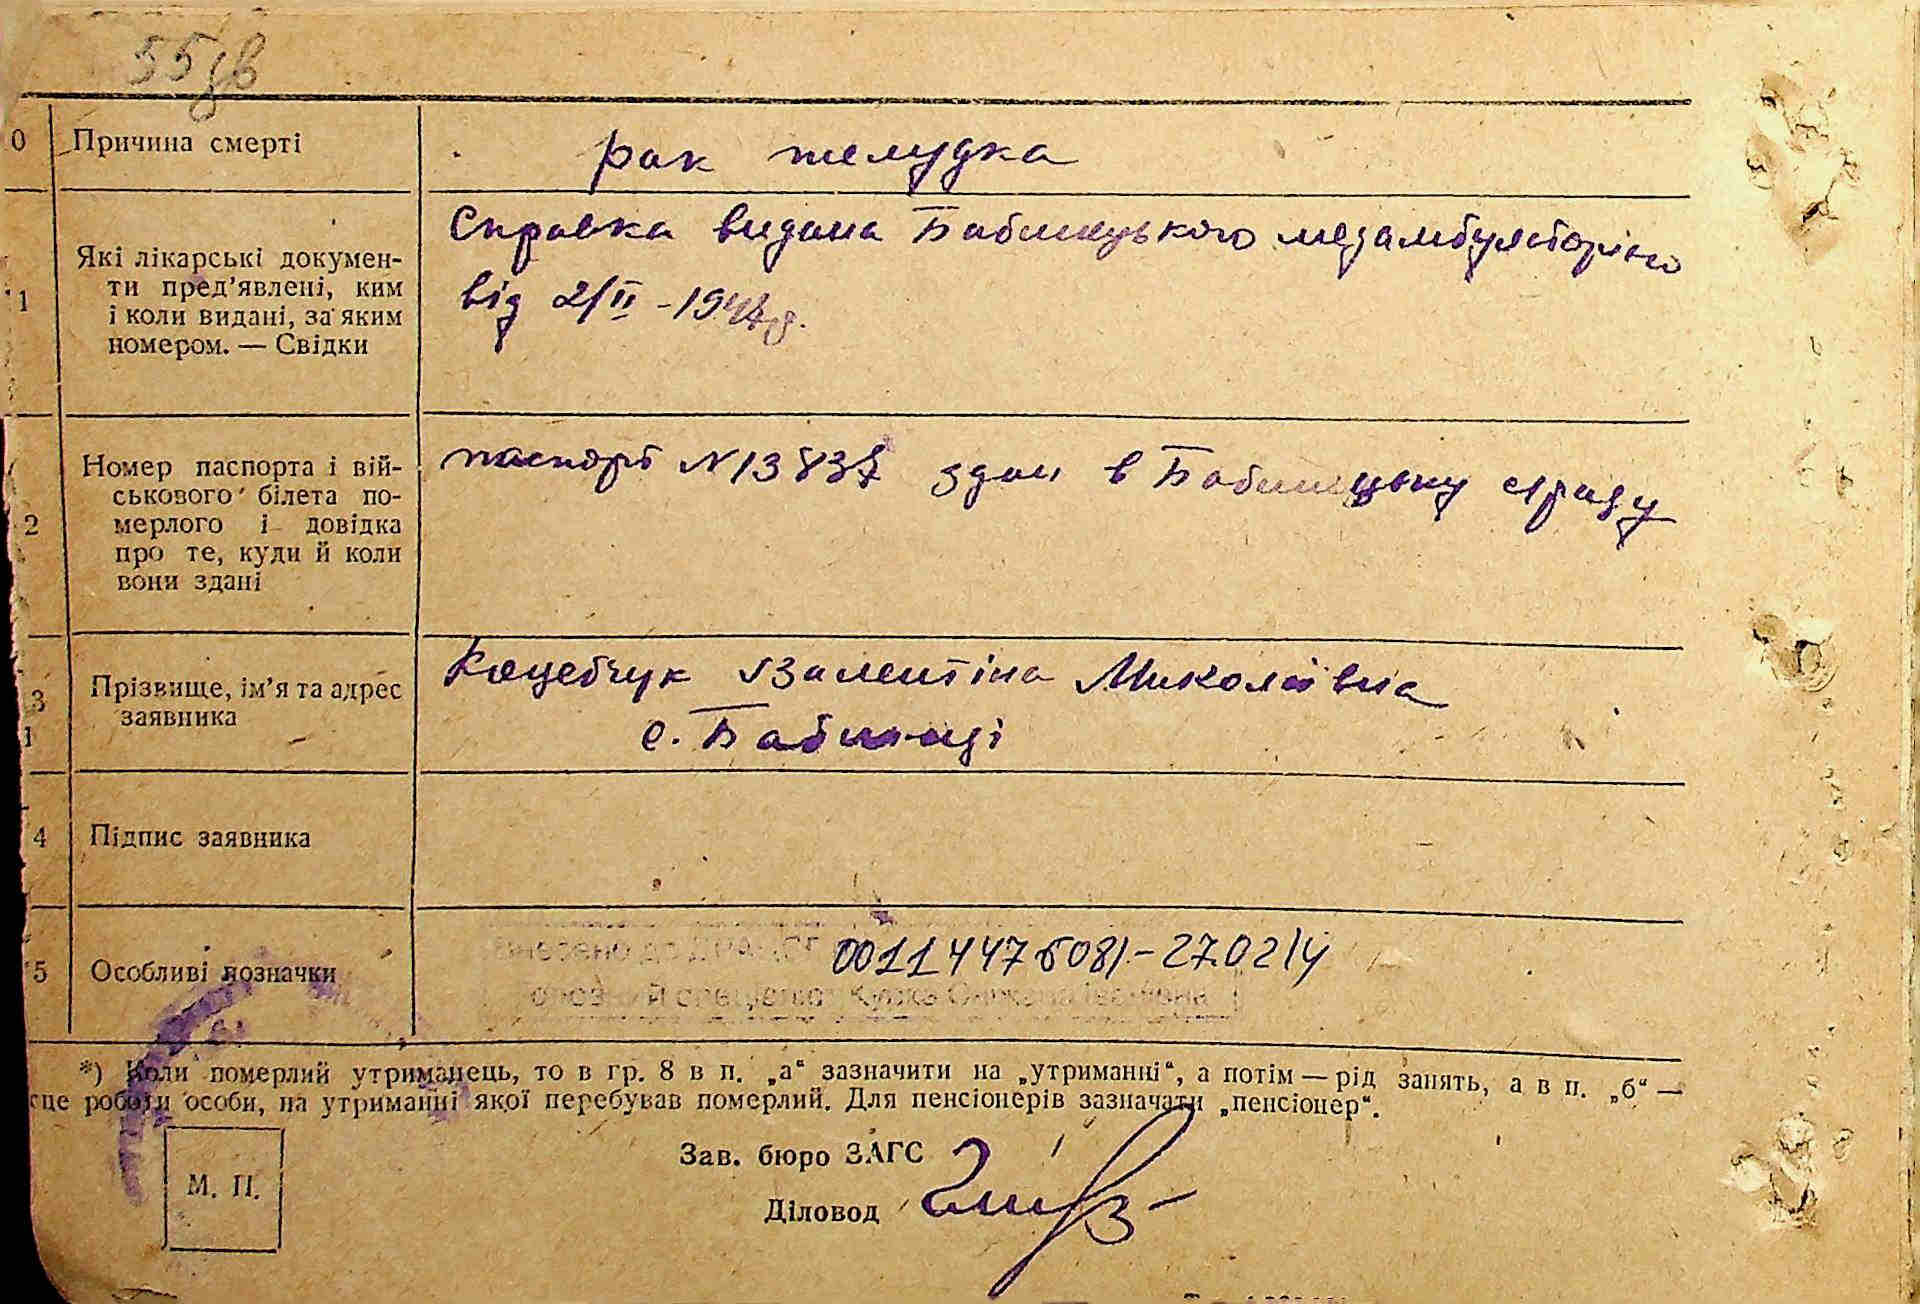 55зв
0 Причина смерті
рак желудка
1 Які лікарські докумен-
ти пред’явлені, ким
і коли видані, за яким
номером. — Свідки
Справка видана Бабинецького медамбуляторією
від 2/ІІ - 1944р.
2 Номер паспорта і вій-
ськового білета по-
мерлого і довідка
про те, куди й коли
вони здані
паспорт №13837 здан в Бабинецьку с/раду
3 Прізвище, ім’я та адрес
заявника
1
Валентіна Миколаївна
с. Бабинці
4 Підпис заявника
5 Особливі позначки
Внесено до ДРАЦС 00114475081-27.02.14
Головний спеціаліст
*) Коли померлий утриманець, то в гр. 8 в п. „а“ зазначити на „утриманні“, а потім — рід занять, а в п. „б“ —
сце роботи особи, на утриманні якої перебував померлий. Для пенсіонерів зазначати „пенсіонер“.
Зав. бюро ЗАГС
М. П.
Діловод